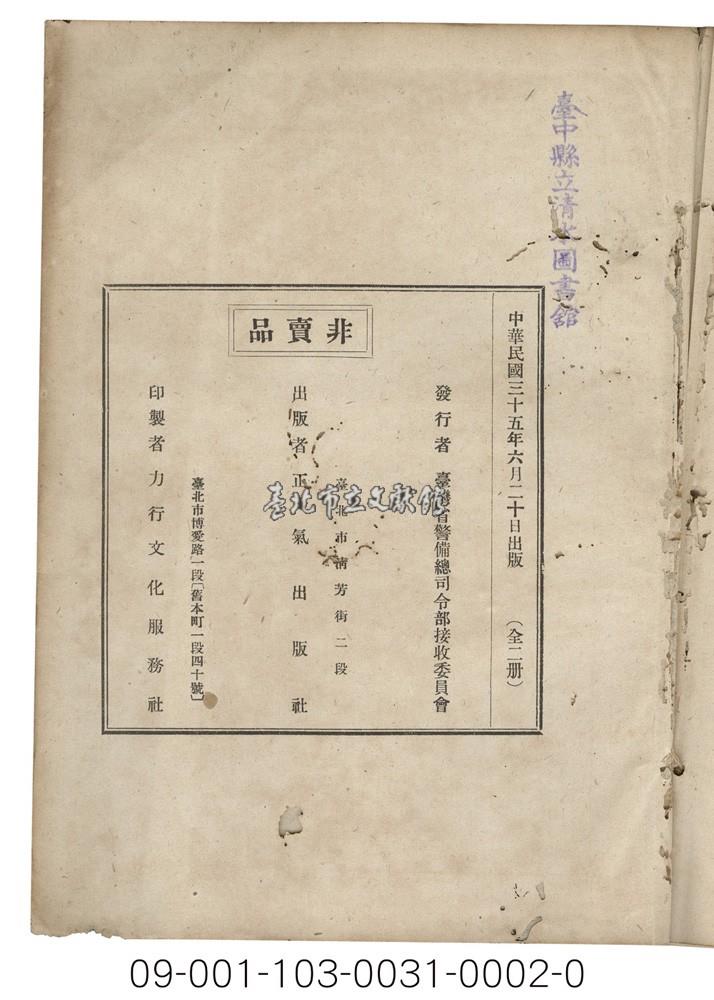 臺中縣立清水圖書館
中華民國三十五年六月二十日出版 (全二册)
發行者 臺灣省警備總司令部接收委員會
非賣品
臺北市清芳街二段
出版者 正氣出版社
臺北市博愛路一段〔舊本町一段四十號〕
印製者 力行文化服務社
臺北市立文獻館
09-001-103-0031-0002-0